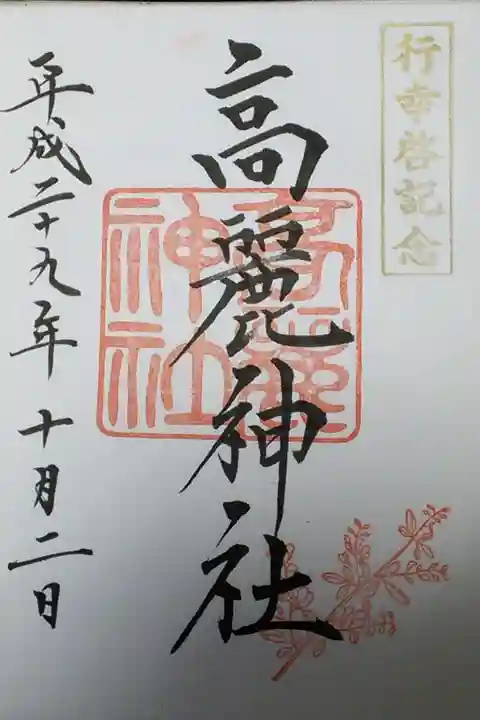 行幸啓記念
高麗神社
高麗神社
平成二十九年 十月二日